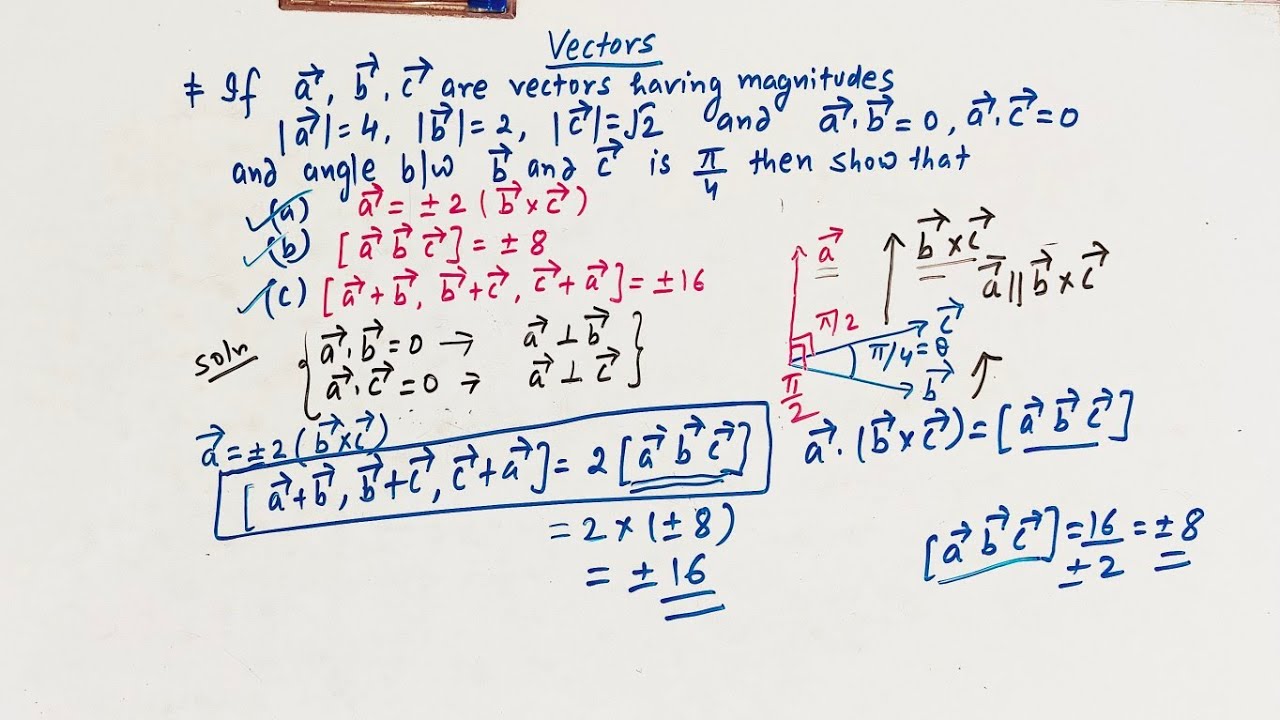 Vectors
≠ If a⃗, b⃗, c⃗ are vectors having magnitudes
|a⃗|=4, |b⃗|=2, |c⃗|=√2 and a⃗.b⃗=0, a⃗.c⃗=0
and angle b/w b⃗ and c⃗ is π/4 then show that
(a) a⃗ = ±2 (b⃗×c⃗)
(b) [a⃗ b⃗ c⃗] = ±8
(c) [a⃗+b⃗, b⃗+c⃗, c⃗+a⃗] = ±16
a⃗
b⃗×c⃗
a⃗ || b⃗×c⃗
π/2
c⃗
π/4=θ
b⃗
π/2
soln
a⃗.b⃗=0 → a⃗ ⊥ b⃗
a⃗.c⃗=0 → a⃗ ⊥ c⃗
a⃗=±2(b⃗×c⃗)
[a⃗+b⃗, b⃗+c⃗, c⃗+a⃗] = 2[a⃗ b⃗ c⃗]
= 2×(±8)
= ±16
a⃗.(b⃗×c⃗)=[a⃗ b⃗ c⃗]
[a⃗ b⃗ c⃗]=16/±2=±8